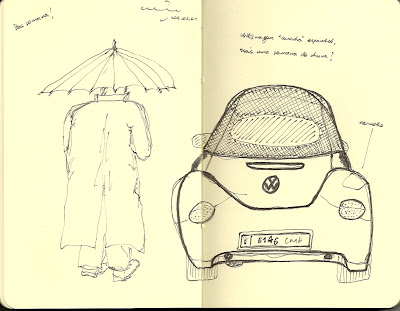 Boa semana!
volkswagen "carocha" espanhol,
mais uma semana de chuva?
vermelho
VW
E 6146 CMB